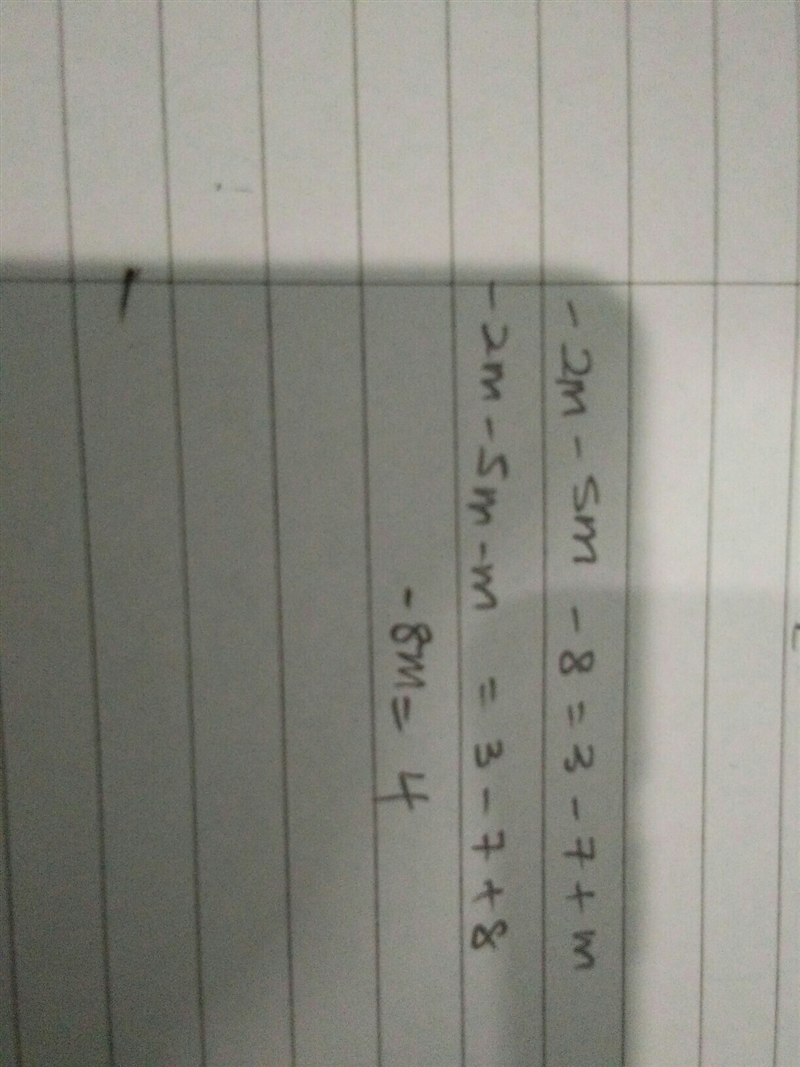 -2m - 5m - 8 = 3 - 7 + m
-2m - 5m - m = 3 - 7 + 8
-8m = 4